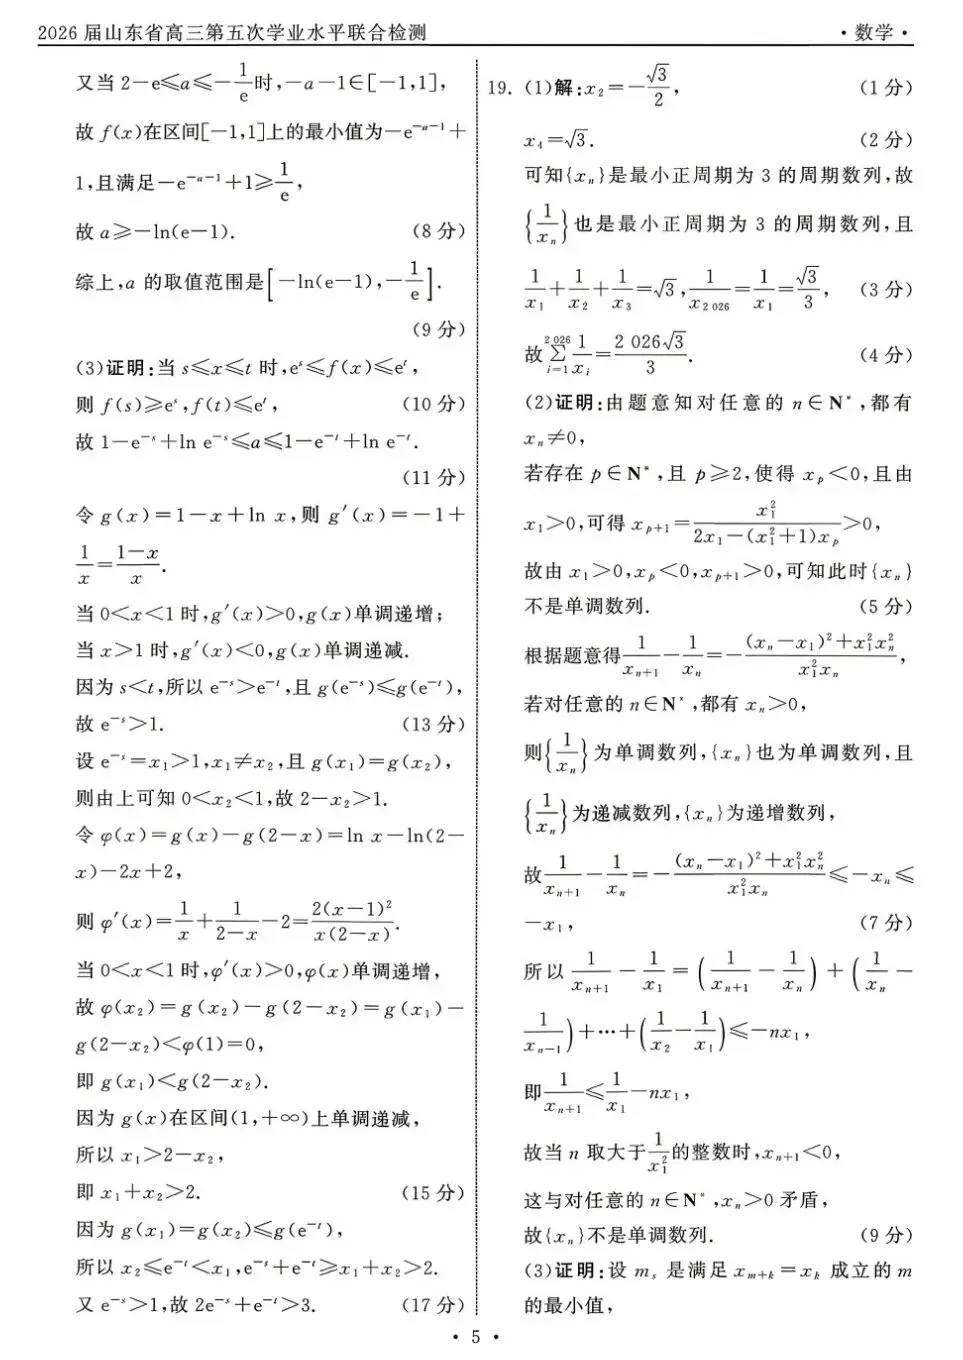 2026届山东省高三第五次学业水平联合检测
·数学·
又当2−e≤a≤−1/e时,−a−1∈[−1,1],
故f(x)在区间[−1,1]上的最小值为−e^{−a−1}+
1,且满足−e^{−a−1}+1≥1/e,
故a≥−ln(e−1). (8分)
综上,a的取值范围是[−ln(e−1),−1/e].
(9分)
(3)证明:当s≤x≤t时,e^s≤f(x)≤e^t,
则f(s)≥e^s,f(t)≤e^t, (10分)
故1−e^{−s}+ln e^{−s}≤a≤1−e^{−t}+ln e^{−t}.
(11分)
令g(x)=1−x+ln x,则g′(x)=−1+
1/x=(1−x)/x.
当0<x<1时,g′(x)>0,g(x)单调递增;
当x>1时,g′(x)<0,g(x)单调递减.
因为s<t,所以e^{−s}>e^{−t},且g(e^{−s})≤g(e^{−t}),
故e^{−s}>1. (13分)
设e^{−s}=x₁>1,x₁≠x₂,且g(x₁)=g(x₂),
则由上可知0<x₂<1,故2−x₂>1.
令φ(x)=g(x)−g(2−x)=ln x−ln(2−
x)−2x+2,
则φ′(x)=1/x+1/(2−x)−2=2(x−1)²/(x(2−x)).
当0<x<1时,φ′(x)>0,φ(x)单调递增,
故φ(x₂)=g(x₂)−g(2−x₂)=g(x₁)−
g(2−x₂)<φ(1)=0,
即g(x₁)<g(2−x₂).
因为g(x)在区间(1,+∞)上单调递减,
所以x₁>2−x₂,
即x₁+x₂>2. (15分)
因为g(x₁)=g(x₂)≤g(e^{−t}),
所以x₂≤e^{−t}<x₁,e^{−s}+e^{−t}≥x₁+x₂>2.
又e^{−s}>1,故2e^{−s}+e^{−t}>3. (17分)
19. (1)解:x₂=−√3/2, (1分)
x₄=√3. (2分)
可知{xₙ}是最小正周期为3的周期数列,故
{1/xₙ}也是最小正周期为3的周期数列,且
1/x₁+1/x₂+1/x₃=√3,1/x_{2 026}=1/x₁=√3/3, (3分)
故∑_{i=1}^{2 026} 1/x_i=2 026√3/3. (4分)
(2)证明:由题意知对任意的n∈N*,都有
xₙ≠0,
若存在p∈N*,且p≥2,使得x_p<0,且由
x₁>0,可得x_{p+1}=x₁²/(2x₁−(x₁²+1)x_p)>0,
故由x₁>0,x_p<0,x_{p+1}>0,可知此时{xₙ}
不是单调数列. (5分)
根据题意得1/x_{n+1}−1/xₙ=−((xₙ−x₁)²+x₁²xₙ²)/(x₁²xₙ),
若对任意的n∈N*,都有xₙ>0,
则{1/xₙ}为单调数列,{xₙ}也为单调数列,且
{1/xₙ}为递减数列,{xₙ}为递增数列,
故1/x_{n+1}−1/xₙ=−((xₙ−x₁)²+x₁²xₙ²)/(x₁²xₙ)≤−xₙ≤
−x₁, (7分)
所以1/x_{n+1}−1/x₁=(1/x_{n+1}−1/xₙ)+(1/xₙ−
1/x_{n−1})+⋯+(1/x₂−1/x₁)≤−nx₁,
即1/x_{n+1}≤1/x₁−nx₁,
故当n取大于1/x₁²的整数时,x_{n+1}<0,
这与对任意的n∈N*,xₙ>0矛盾,
故{xₙ}不是单调数列. (9分)
(3)证明:设m_s是满足x_{m+k}=x_k成立的m
的最小值,
·5·